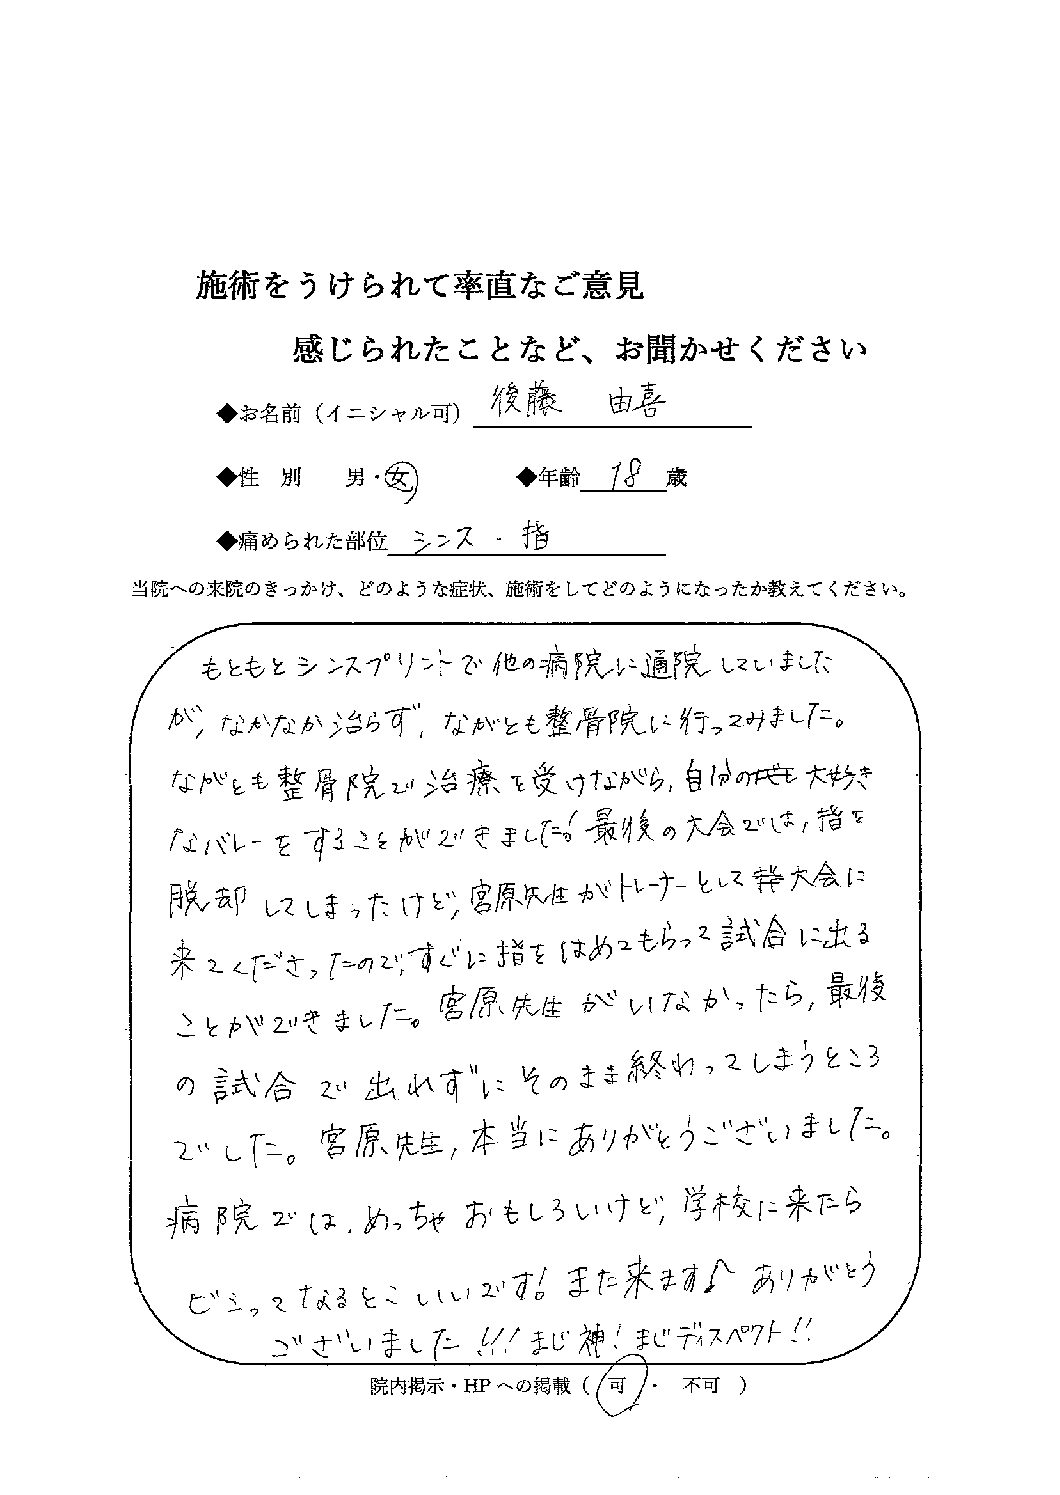 施術をうけられて率直なご意見
感じられたことなど、お聞かせください
◆お名前（イニシャル可） 後藤 由喜
◆性 別 男・女 ◆年齢 18 歳
◆痛められた部位 シンス・指
当院への来院のきっかけ、どのような症状、施術をしてどのようになったか教えてください。
もともとシンスプリントで他の病院に通院していました
が, なかなか治らず, ながとも整骨院に行ってみました。
ながとも整骨院で治療を受けながら, 自分の大好き
なバレーをすることができました! 最後の大会では, 指を
脱却してしまったけど, 宮原先生がトレーナーとして大会に
来てくださったので, すぐに指をはめてもらって試合に出る
ことができました。宮原先生がいなかったら, 最後
の試合で出れずにそのまま終わってしまうところ
でした。宮原先生, 本当にありがとうございました。
病院では, めっちゃおもしろいけど, 学校に来たら
ビシってなるとこいいです! また来ます♪ ありがとう
ございました!!! まじ神! まじディスペクト!!
院内掲示・HPへの掲載（ 可 ・ 不可 ）